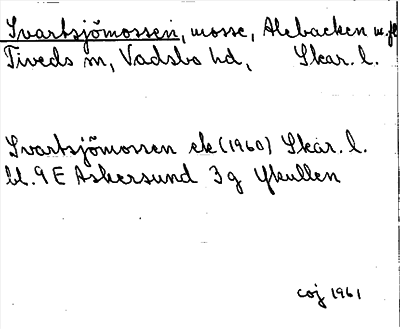 Svartsjömossen, mosse, Alebacken m.fl
Tiveds sn, Vadsbo hd, Skar. l.
Svartsjömossen ek (1960) Skar. l.
bl. 9 E Askersund 3 g Ykullen
coj 1961